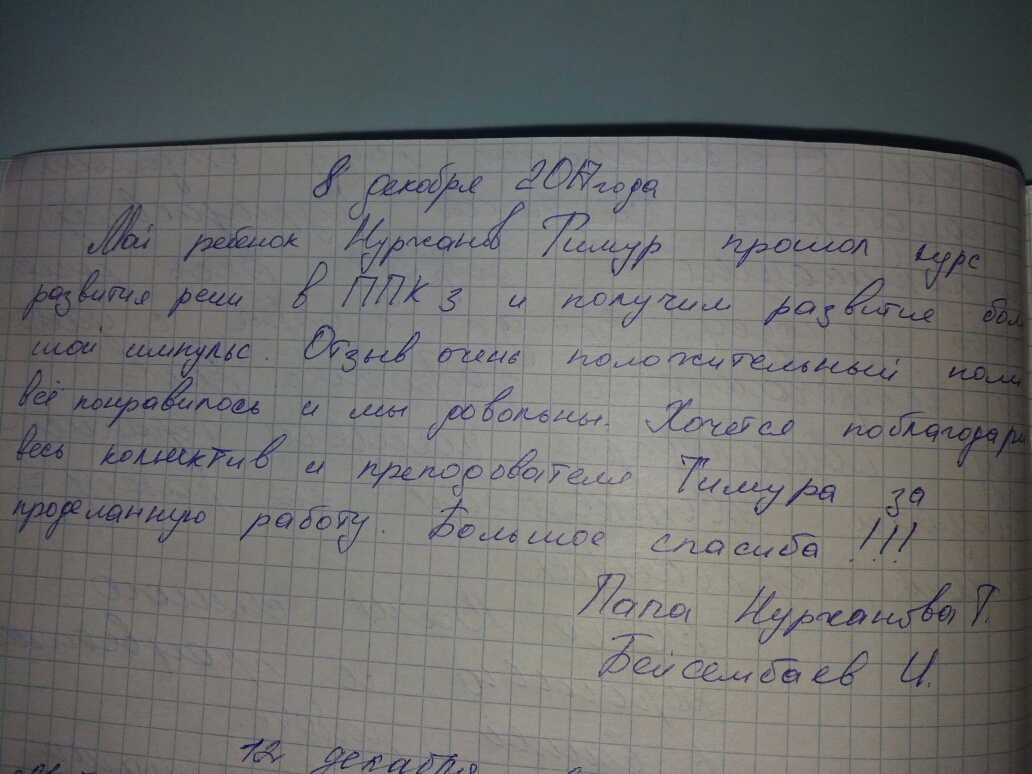 8 декабря 2017 года
Мой ребенок Нурханов Тимур прошол курс
развития речи в ППК 3 и получим развитие бол
шой импульс. Отзыв очень положительный
всё понравилось и мы довольны. Хочется поблагодари
весь коллектив и преподователя Тимура за
проделанную работу. Большое спасиба !!!
Папа Нурханова Т.
Бейсембаев И.
12 декабря